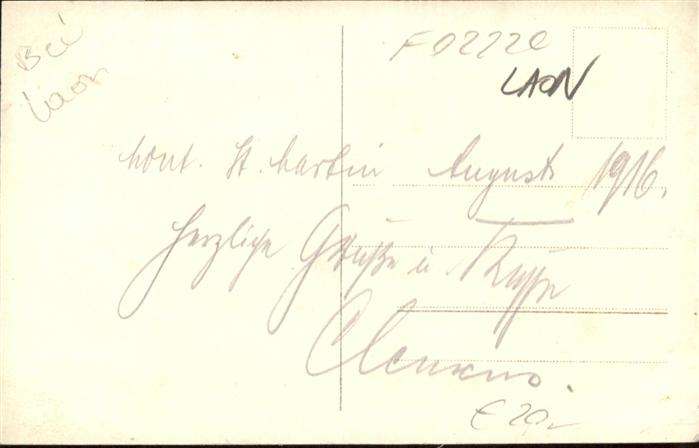 Bei
Laon
F02220
LAON
Mont. St. Martin August 1916.
Herzliche Grüße u Küsse
Clemens.
€ 20,-